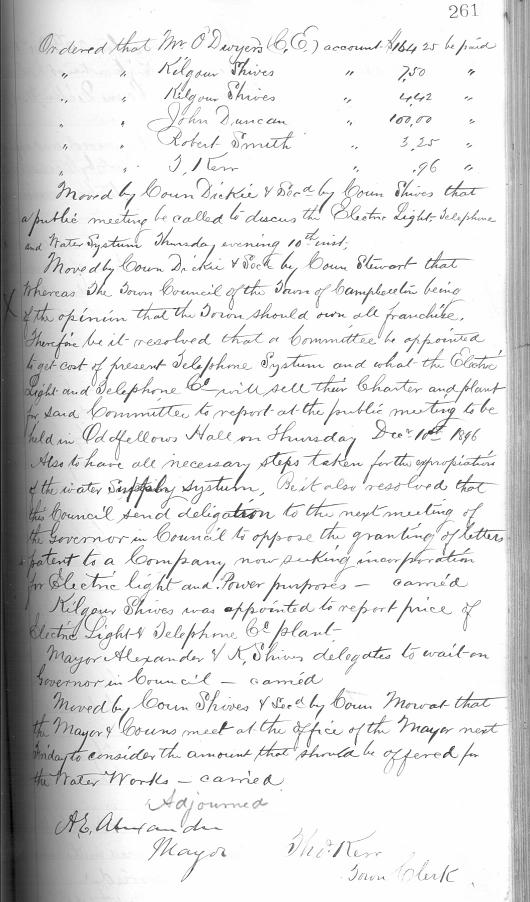 261
Ordered that Mr O'Dwyers (C.E.) account $164 25 be paid
" " Kilgour Shives " 7,50 "
" " Kilgour Shives " 4,42 "
" " John Duncan " 100,00 "
" " Robert Smith " 3,25 "
" " T. Kerr " ,96 "
Moved by Coun Dickie & Secd by Coun Shives that
a public meeting be called to discus the Electric Light, Telephone
and Water System Thursday evening 10th inst;
Moved by Coun Dickie & Secd by Coun Stewart that
X Whereas The Town Council of the Town of Campbellton being
of the opinion that the Town should own all franchise,
Therefore be it resolved that a Committee be appointed
to get cost of present Telephone System and what the Electric
Light and Telephone Co will sell their Charter and plant
for said Committee to report at the public meeting to be
held in Oddfellows Hall on Thursday Decr 10th 1896
Also to have all necessary steps taken for the expropiation
of the water supply system, Be it also resolved that
this Council send deligation to the next meeting of
the Governor in Council to oppose the granting of letters
patent to a Company now seeking incorporation
for Electric light and Power purposes — carried
Kilgour Shives was appointed to report price of
Electric Light & Telephone Co plant
Mayor Alexander & K, Shives delegates to wait on
Governor in Council — carried
Moved by Coun Shives & Secd by Coun Mowat that
the Mayor & Couns meet at the office of the Mayor next
Friday to consider the amount that should be offered for
the Water Works — carried
Adjourned
A E Alexander
Mayor Thos Kerr
Town Clerk